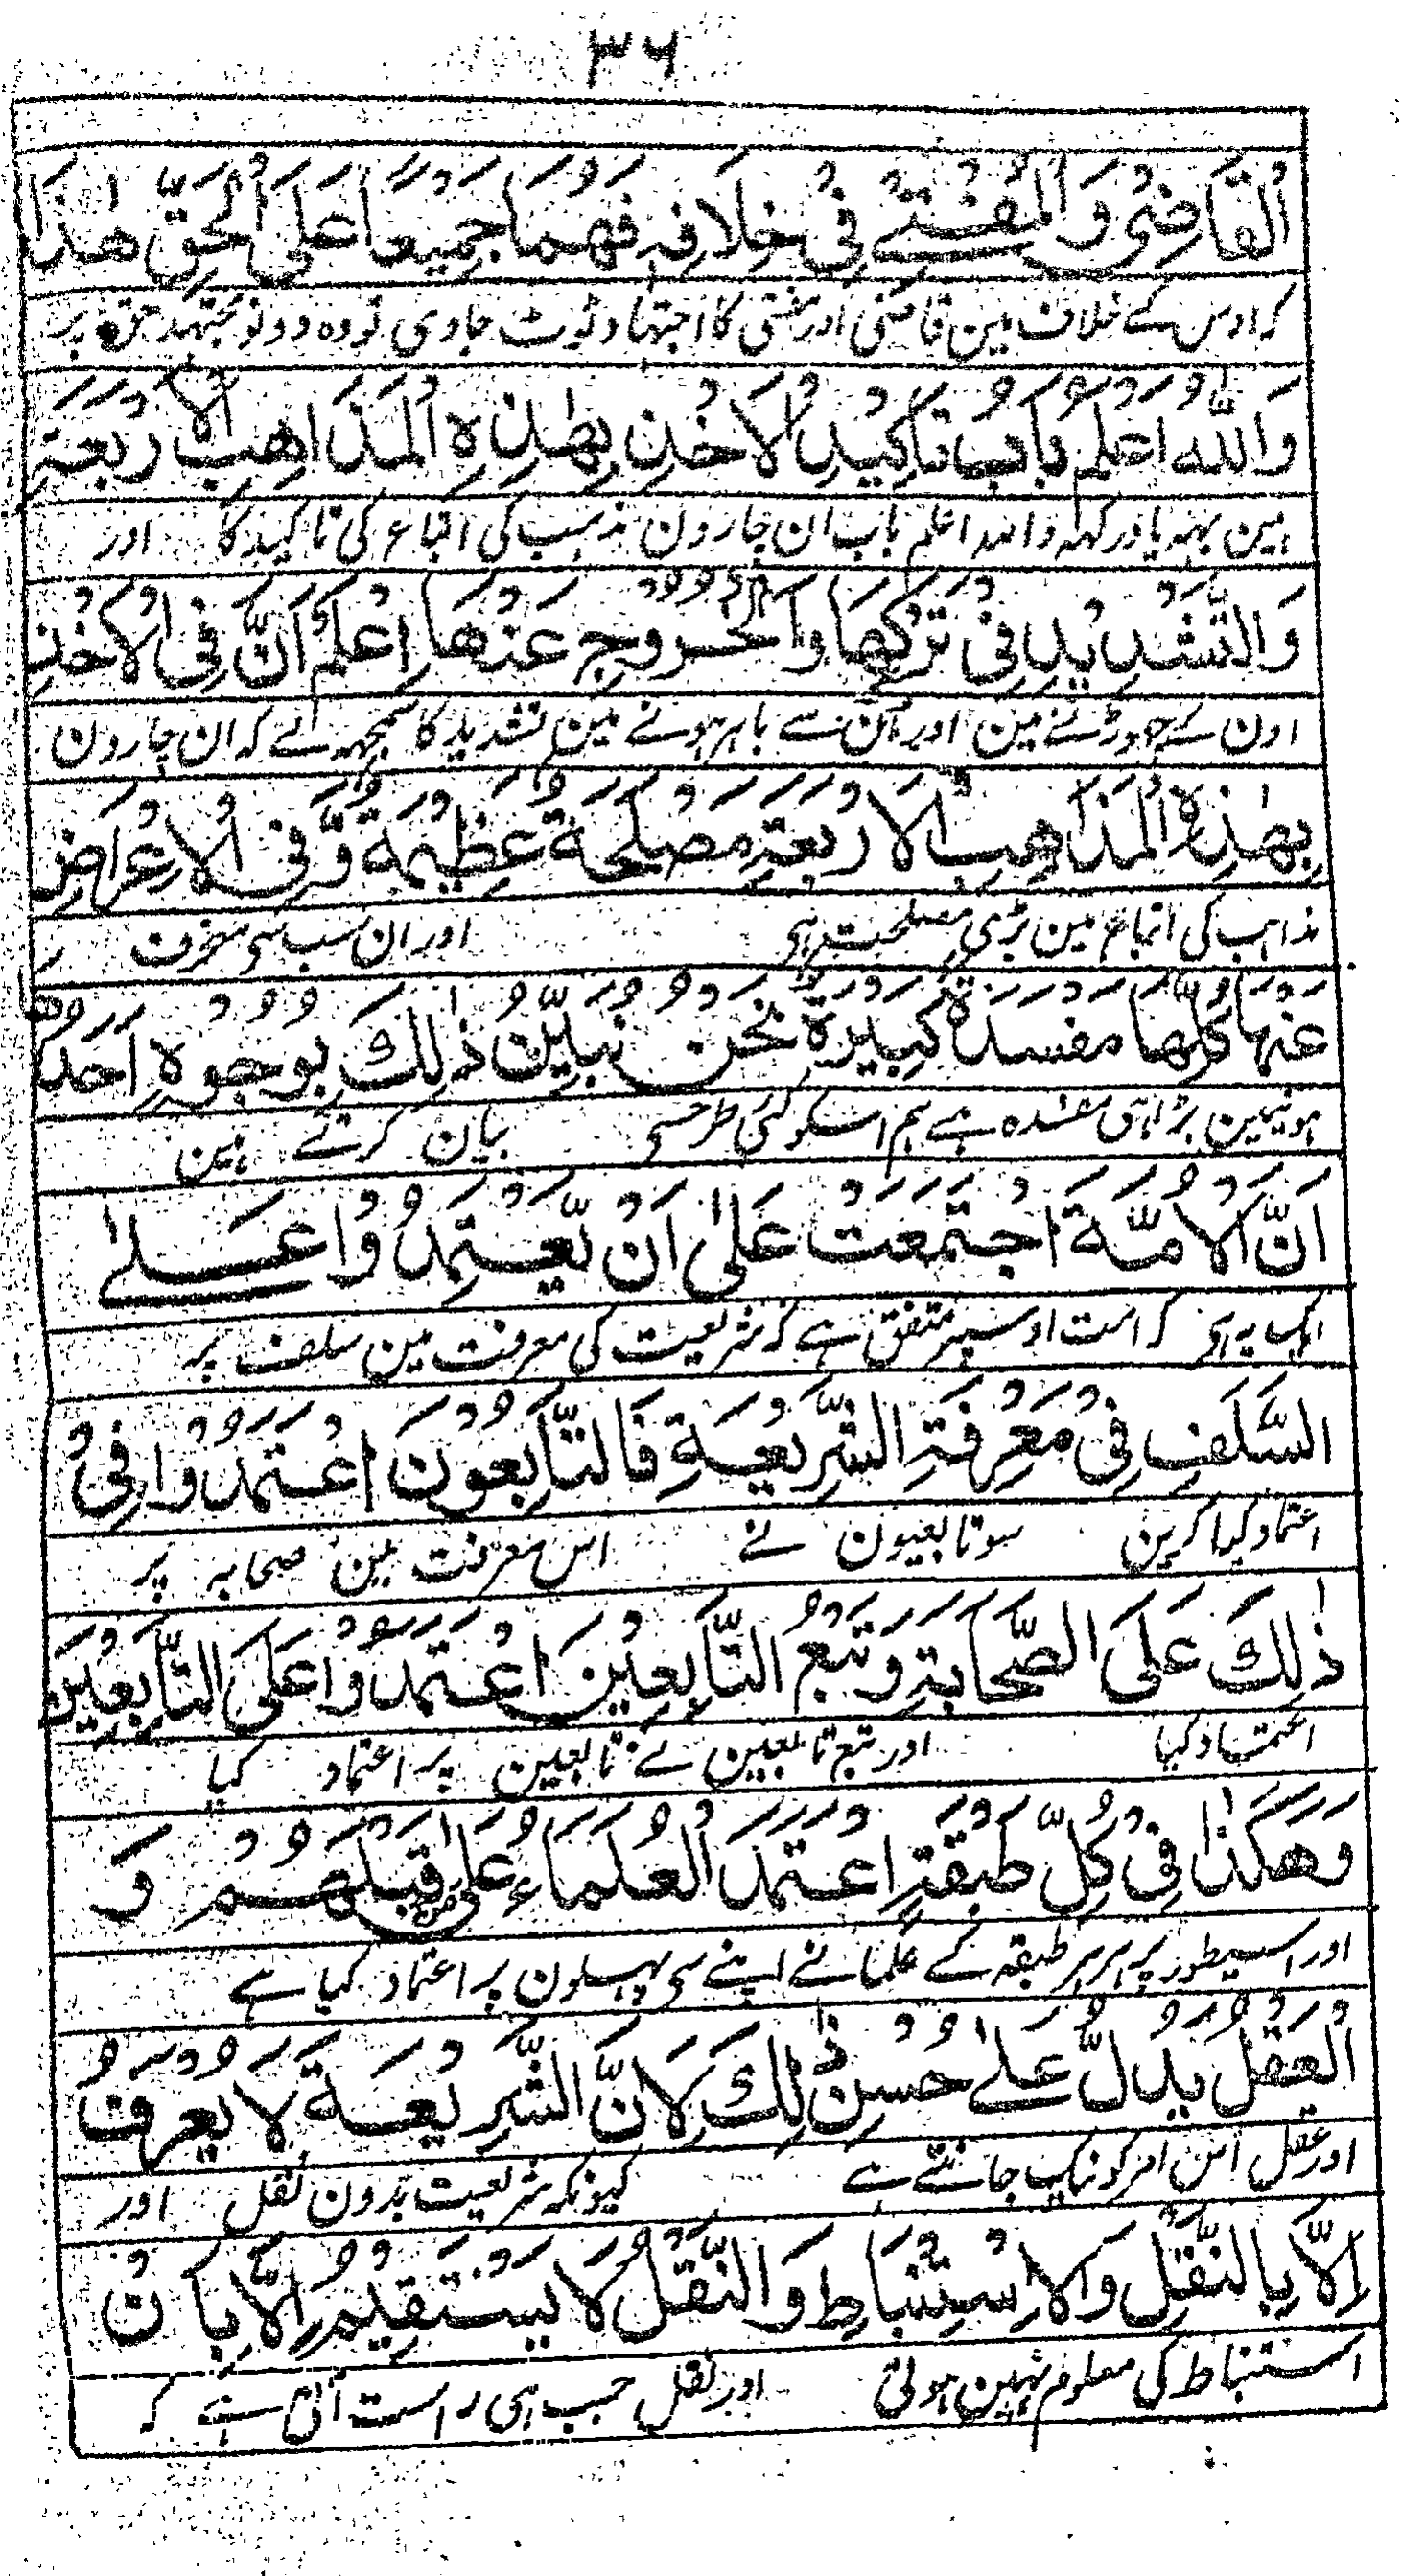 ۳۶
اَلْقَاضِیْ وَالْمُفْتِےْ فِیْ خِلَافِہٖ فَھُمَا جَمِیْعًا عَلَی الْحَقِّ ھٰذَا
کہ اوس کے خلاف مین قاضی اور مفتی کا اجتہاد ٹوٹ جاوی تو وہ دونو مجتہد حق پر
وَاللّٰہُ اَعْلَمُ بَابُ تَاکِیْدِ الْاَخْذِ بِھٰذِہِ الْمَذَاھِبِ الْاَرْبَعَۃِ
ہین یہہ یاد رکہہ واللہ اعلم باب ان چارون مذہب کی اتباع کی تاکید کا اور
وَالتَّشْدِیْدِ فِیْ تَرْکِھَا وَالْخُرُوْجِ عَنْھَا اِعْلَمْ اَنَّ فِی الْاَخْذِ
اون کے چہوڑنے مین اور اُن سے باہر ہونے مین تشدید کا سمجہہ لے کہ ان چارون
بِھٰذِہِ الْمَذَاھِبِ الْاَرْبَعَۃِ مَصْلَحَۃً عَظِیْمَۃً وَّفِی الْاِعْرَاضِ
مذاہب کی اتباع مین بڑی مصلحت ہی اور ان سب سی منحرف
عَنْہَا کُلِّھَا مَفْسَدَۃً کَبِیْرَۃً نَحْنُ نُبَیِّنُ ذٰلِكَ بِوُجُوْہٍ اَحَدُھَا
ہونیمین بڑا ہی مفسدہ ہے ہم اسکو کئی طرحسی بیان کرتے ہین
اَنَّ الْاُمَّۃَ اجْتَمَعَتْ عَلٰی اَنْ یَّعْتَمِدُوْا عَــلےٰ
ایک یہ ہی کہ امت اوسپر متفق ہے کہ شریعت کی معرفت مین سلف پر
السَّلَفِ فِیْ مَعْرِفَۃِ الشَّرِیْعَۃِ فَالتَّابِعُوْنَ اعْتَمَدُوْا فِیْ
اعتماد کیا کرین سو تابعیون نے اس معرفت مین صحابہ پر
ذٰلِكَ عَلَی الصَّحَابَۃِ وَتَبْعُ التَّابِعِیْنَ اعْتَمَدُوْا عَلَی التَّابِعِیْنَ
اعتماد کیا اور تبع تابعین نے تابعین پر اعتماد کیا
وَھٰکَذَا فِیْ کُلِّ طَبَقَۃٍ اِعْتَمَدَ الْعُلَمَاءُ عَلیٰ مَنْ قَبْلَھُمْ وَ
اور اسیطور پر ہر ہر طبقہ کے علمانے اپنے سی پہلون پر اعتماد کیا ہے
الْعَقْلُ یَدُلُّ عَلےٰ حُسْنِ ذٰلِكَ لِاَنَّ الشَّرِیْعَۃَ لَا یُعْرَفُ
اور عقل اس امر کو نیک جانتے ہے کیونکہ شریعت بدون نقل اور
اِلَّا بِالنَّقْلِ وَالْاِسْتِنْبَاطِ وَالنَّقْلُ لَا یَسْتَقِیْمُ اِلَّا بِاَنْ
استنباط کی معلوم نہین ہوتی اور نقل جب ہی راست آتی ہے کہ